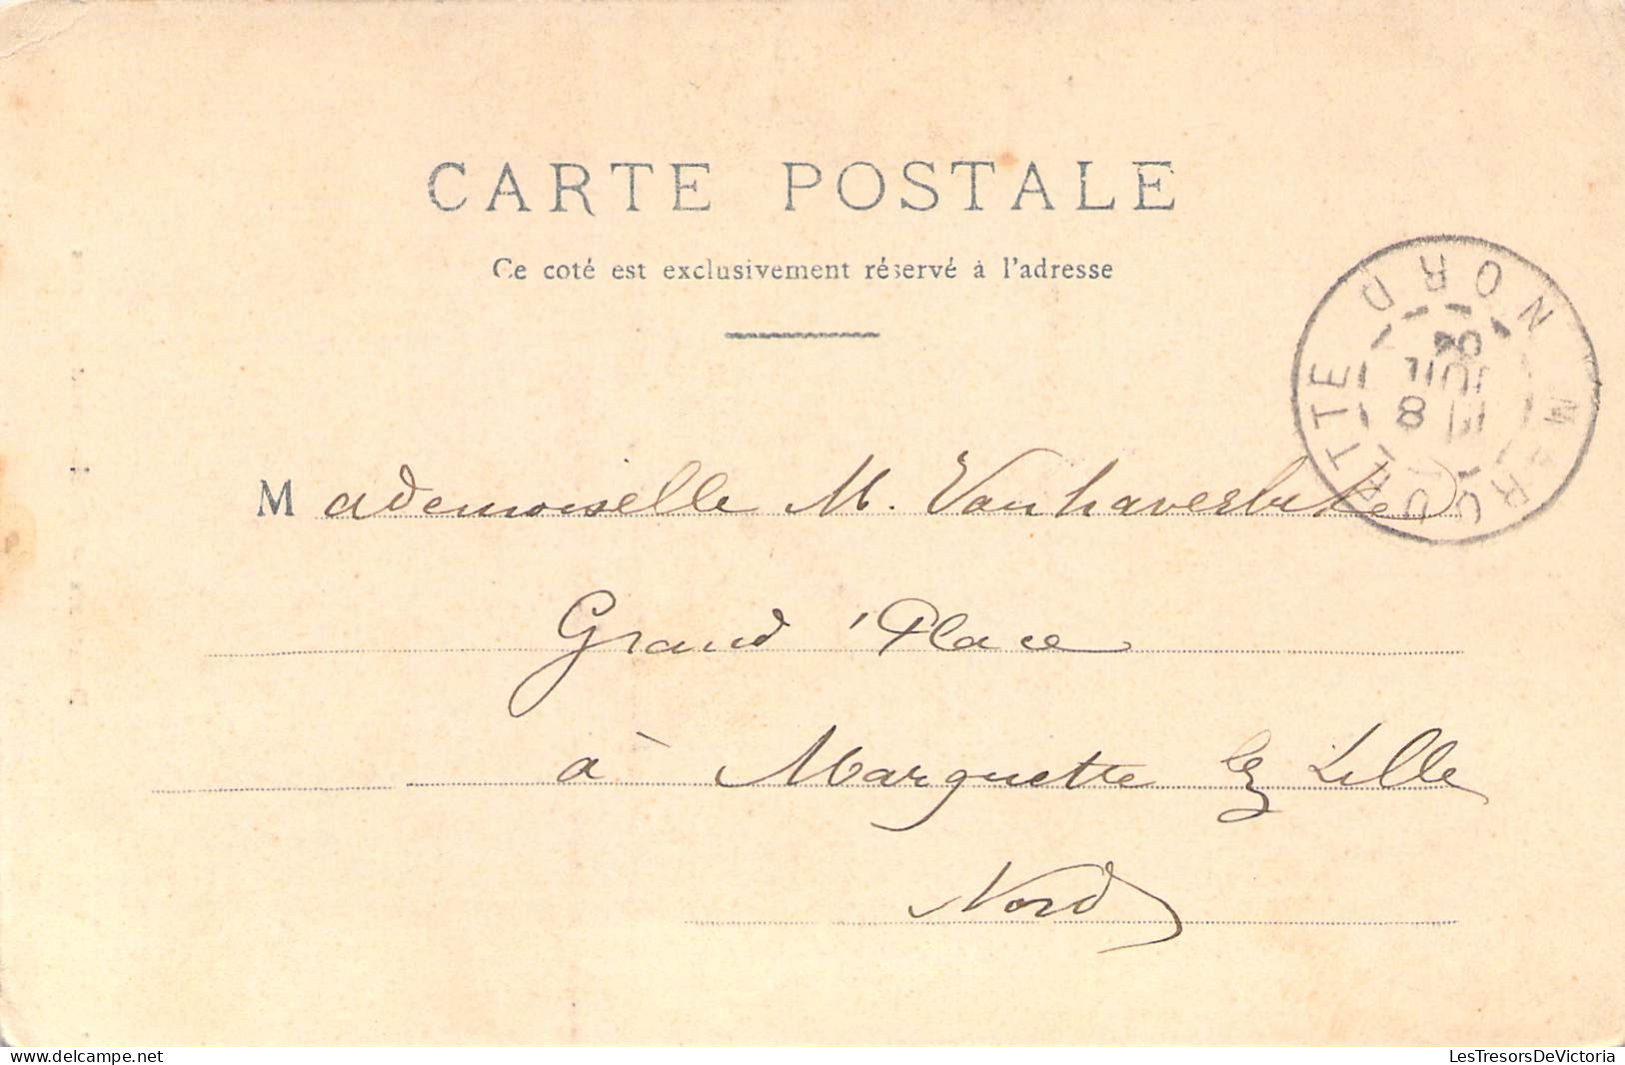 CARTE POSTALE
Ce coté est exclusivement réservé à l'adresse
MARQUETTE NORD
8
JUIL
04
Mademoiselle M. Vanhaverbeke
Grand'Place
à Marquette lez Lille
Nord
delcampe.net
LesTresorsDeVictoria